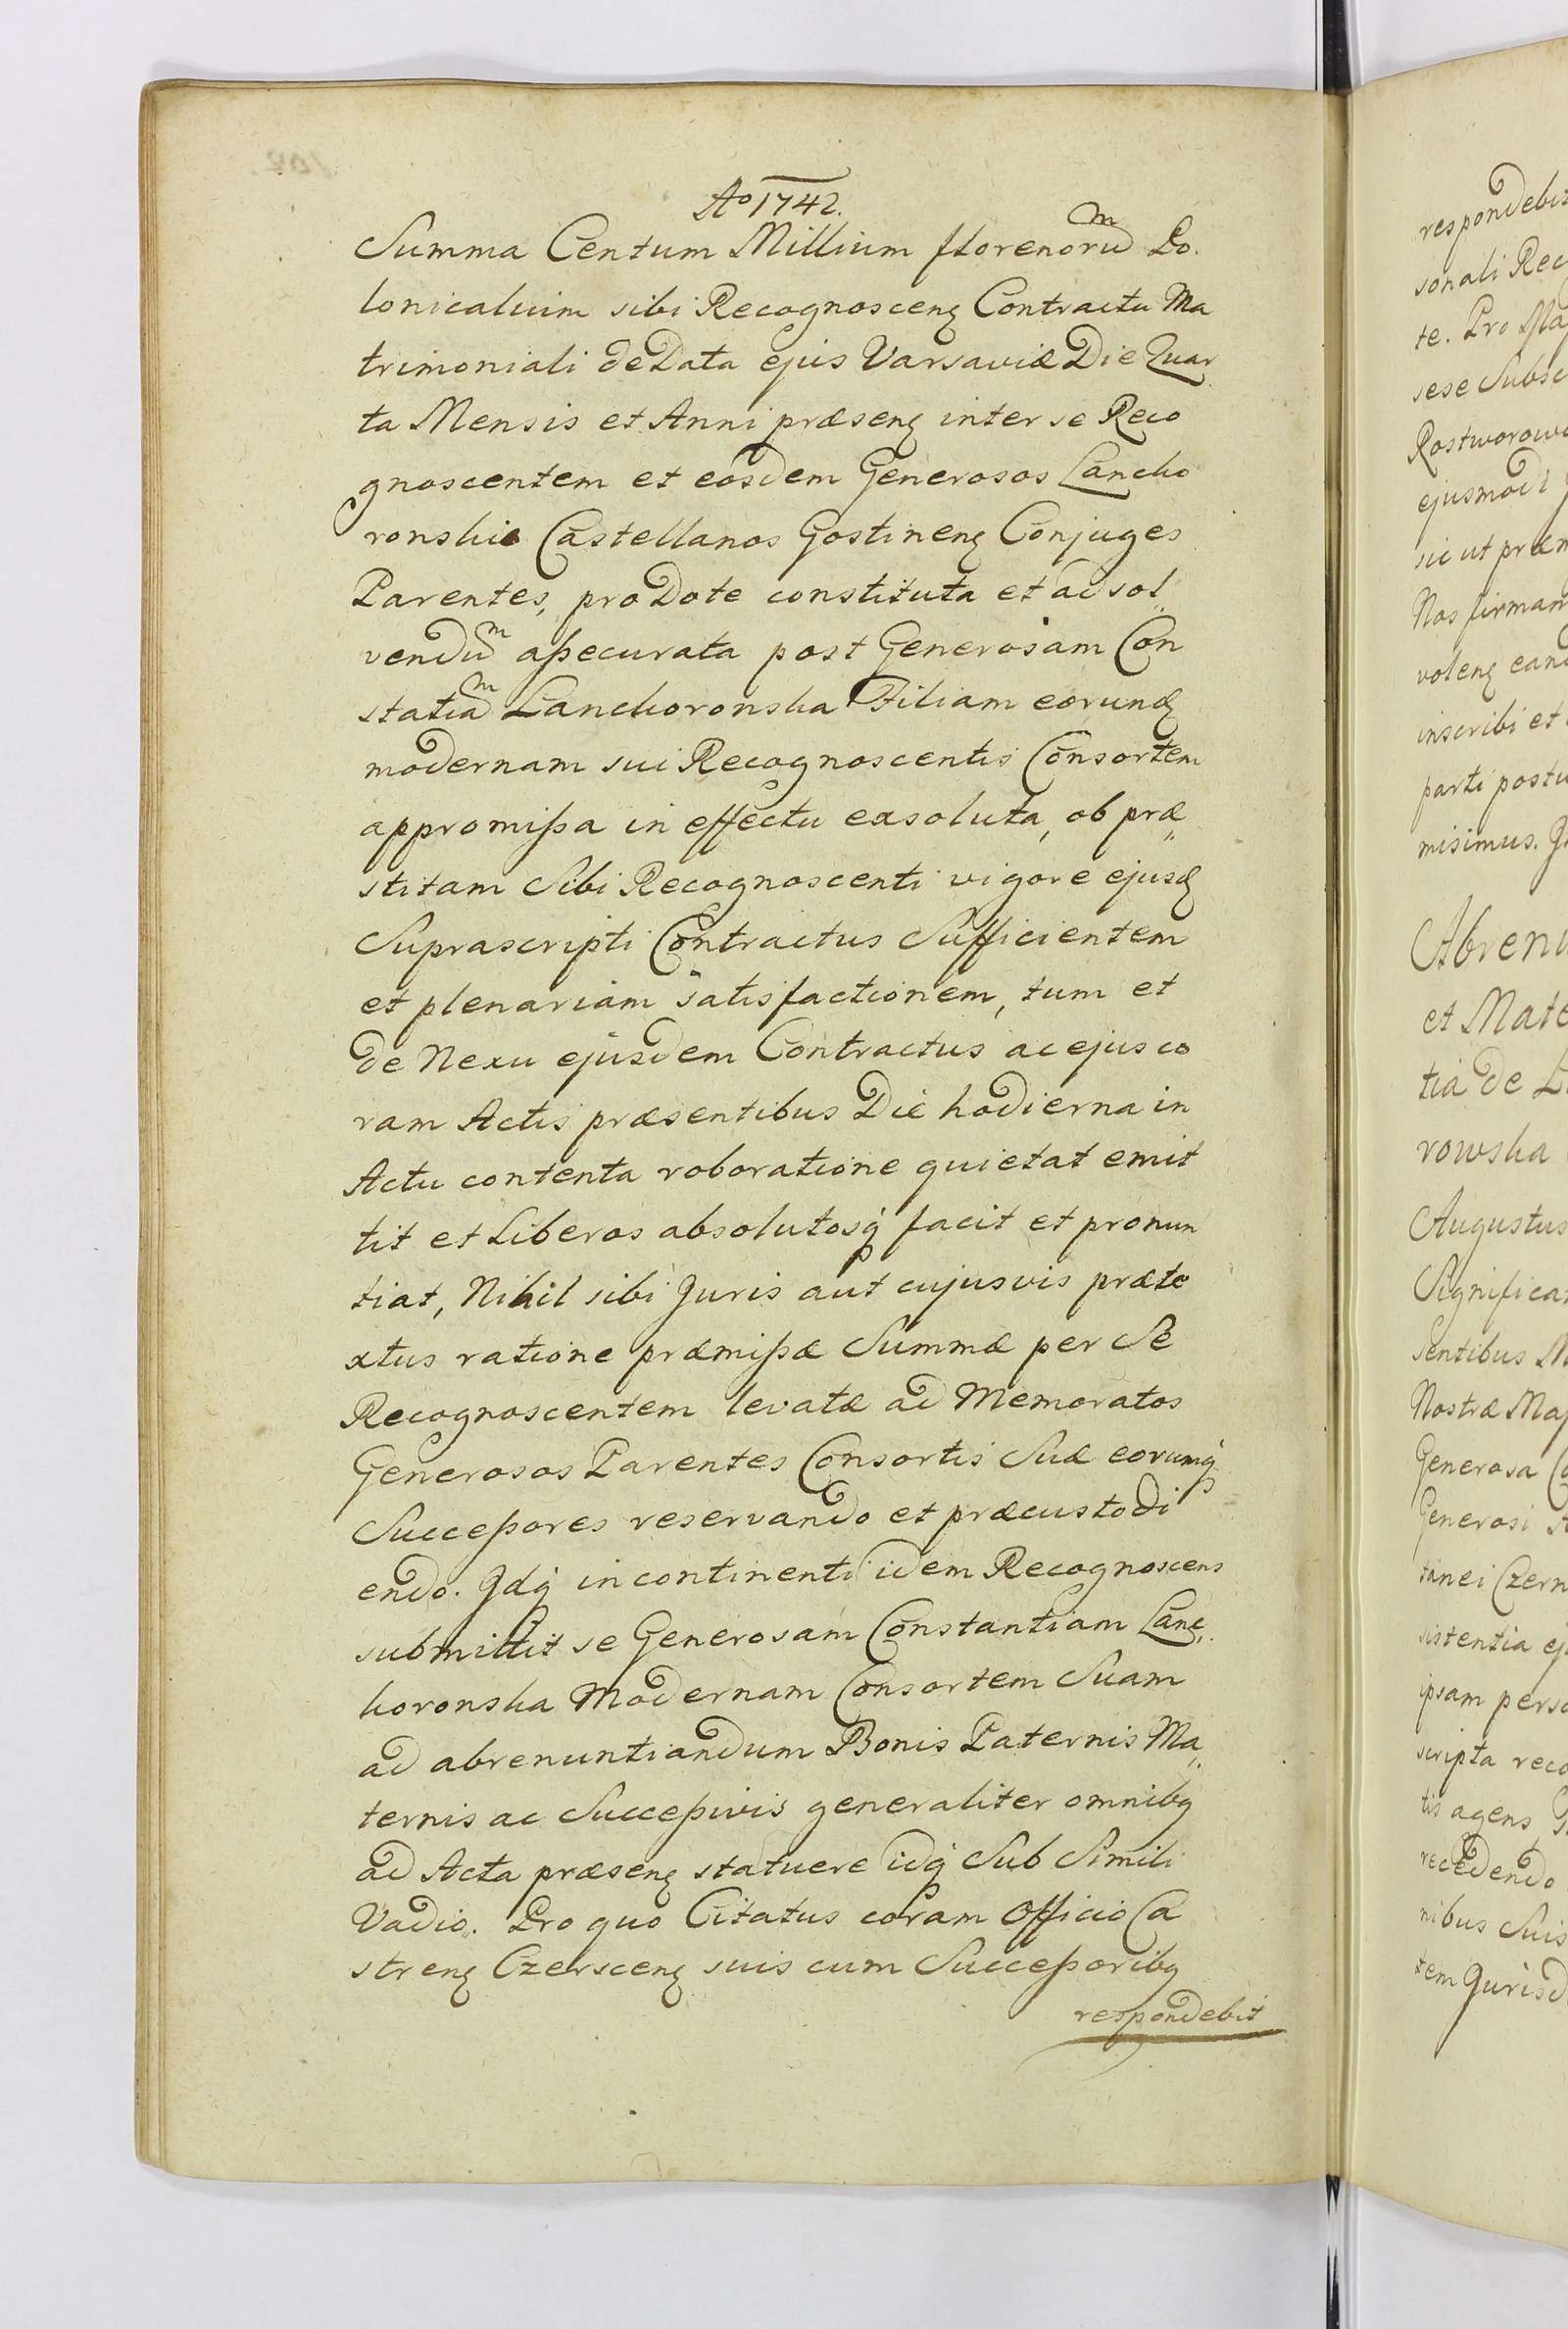 Ao 1742.
Summa Centum Millium florenorum Po.
lonicaluim sibi Recognoscenꝫ Contractu Ma
trimoniali de Data ejus Varsaviæ Die Quar
ta Mensis et Anni præsenꝫ inter se Reco
gnoscentem et eosdem Generosos Lancko
ronskie Castellanos Gostinenꝫ Conjuges
Parentes, pro Dote constituta et ad sol
vendum aßecurata post Generosam Con
statiam Lanckoronska Filiam eorundꝫ
modernam sui Recognoscentis Consortem
appromißa in effectu exsoluta, ob præ„
stitam Sibi Recognoscenti vigore ejusdꝫ
Suprascripti Contractus Sufficientem
et plenariam satisfactionem, tum et
de Nexu ejusdem Contractus ac ejus co
ram Actis præsentibus Die hodierna in
Actu contenta roboratione quietat emit
tit et Liberos absolutosq́ facit et pronun
tiat, Nihil sibi Juris aut cujusvis præte
xtus ratione præmißæ Summæ per Se
Recognoscentem levatæ ad Memoratos
Generosos Parentes Consortis Suæ eorumq́
Succeßores reservando et præcustodi
endo. Jdq́ in continenti idem Recognoscens
submittit se Generosam Constantiam Lanc„
koronska Modernam Consortem Suam
ad abrenuntiandum Bonis Paternis Ma„
ternis ac Succeßivis generaliter omnibꝫ
ad Acta præsenꝫ statuere idq́ Sub Simili
Vadio. Pro quo Citatus coram Officio Ca
strenꝫ Czerscenꝫ suis cum Succeßoribꝫ
respondebit
respondebit
sonali Rec
te. Pro
sese Subsc
Rostworow
ejusmodi
sic ut præm
Nos firmam
volenꝫ eand
inscribi et
parti postu
misimus.
Abrenu
et Mate
tia de L
rowska
Augustus
Significa
sentibus M
Nostræ Maj
Generosa Co
Generosi
tanei Czern
sistentia ej
ipsam perso
scripta reco
tis agens
recedendo
nibus Suis
tem Jurisd